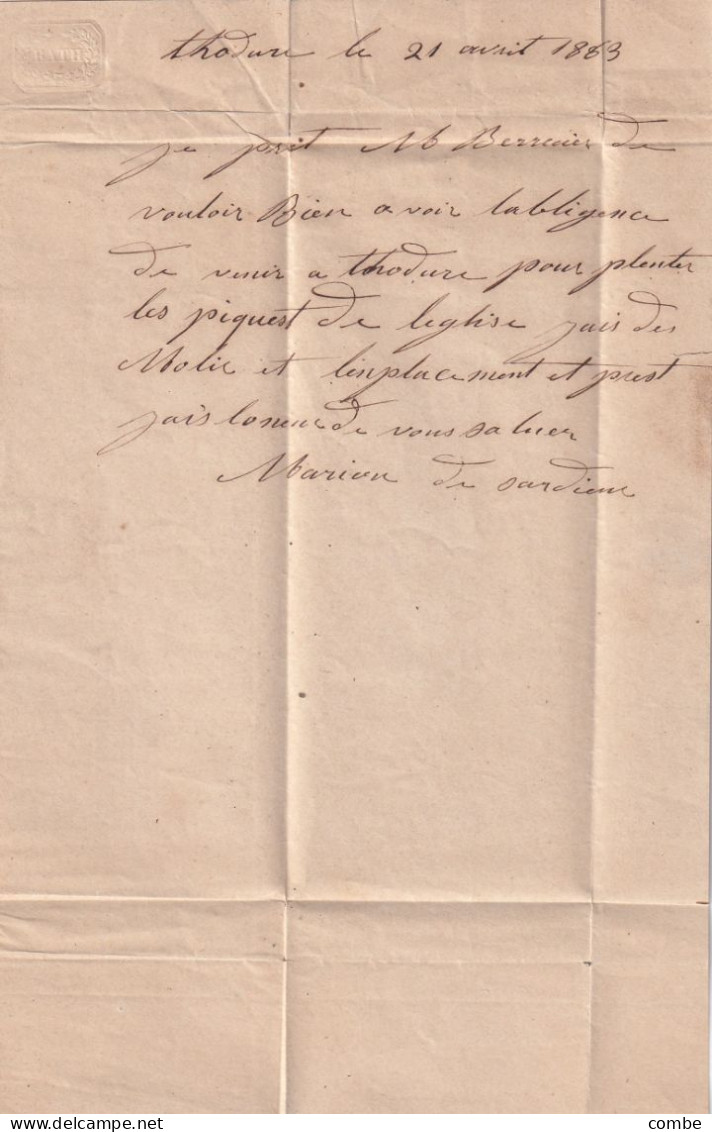 BATH
thodure le 21 avrit 1863
je prit Mr Berruier de
vouloir Bien avoir labligence
de venir a thodure pour plenter
les piquest de leglise jais des
Molie et lenplacement et prest
jais loneur de vous saluer
Marion de sardieu
combe